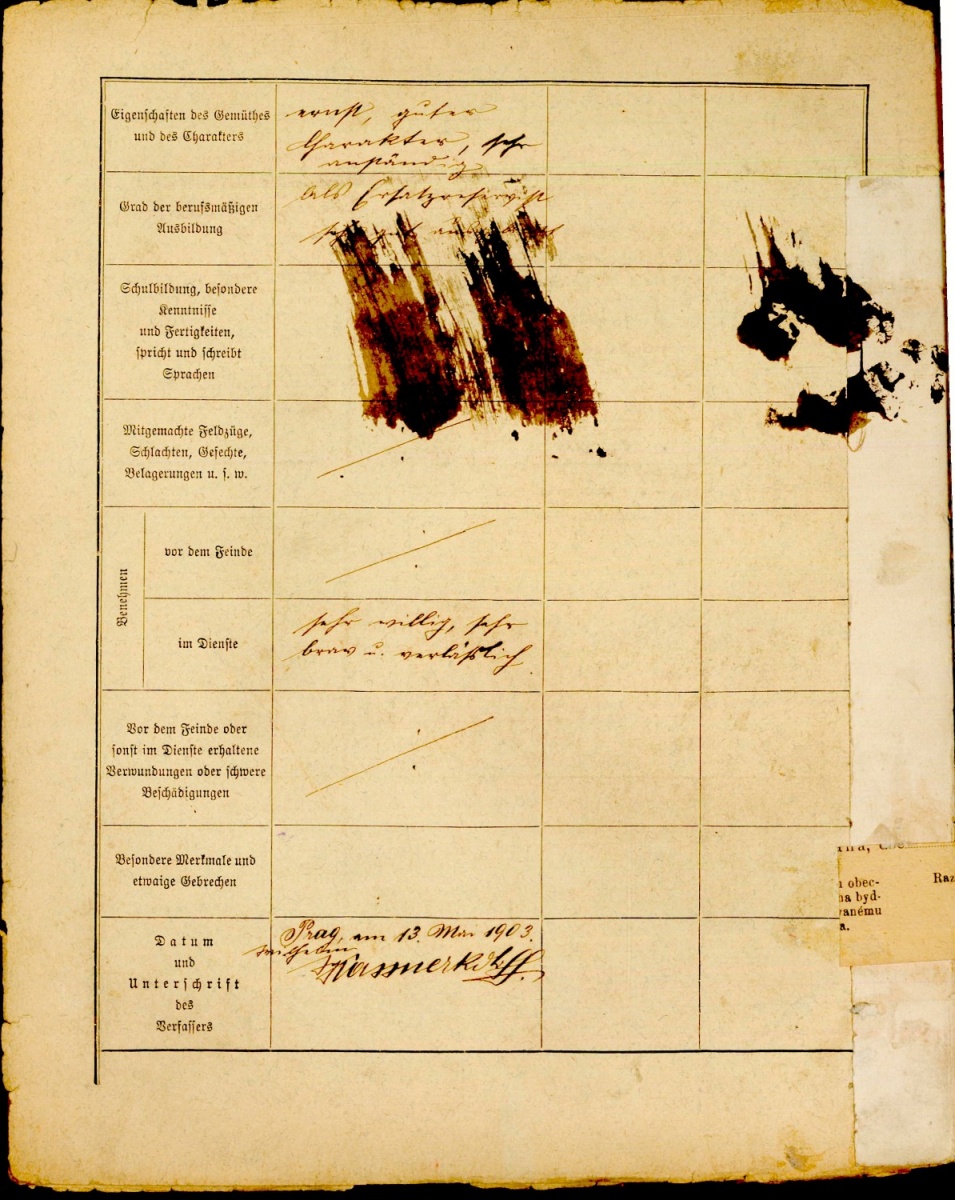 Eigenschaften des Gemüthes
und des Charakters
ernst, guter
Charakter, sehr
anständig
Grad der berufsmäßigen
Ausbildung
Als Ersatzreservist
sehr gut
Schulbildung, besondere
Kenntnisse
und Fertigkeiten,
spricht und schreibt
Sprachen
Mitgemachte Feldzüge,
Schlachten, Gefechte,
Belagerungen u. s. w.
Benehmen
vor dem Feinde
im Dienste
sehr willig, sehr
brav u. verläßlich
Vor dem Feinde oder
sonst im Dienste erhaltene
Verwundungen oder schwere
Beschädigungen
Besondere Merkmale und
etwaige Gebrechen
obec-
Raz
na byd-
vanému
a.
Datum
und
Unterschrift
des
Verfassers
Prag, am 13. Mai 1903.